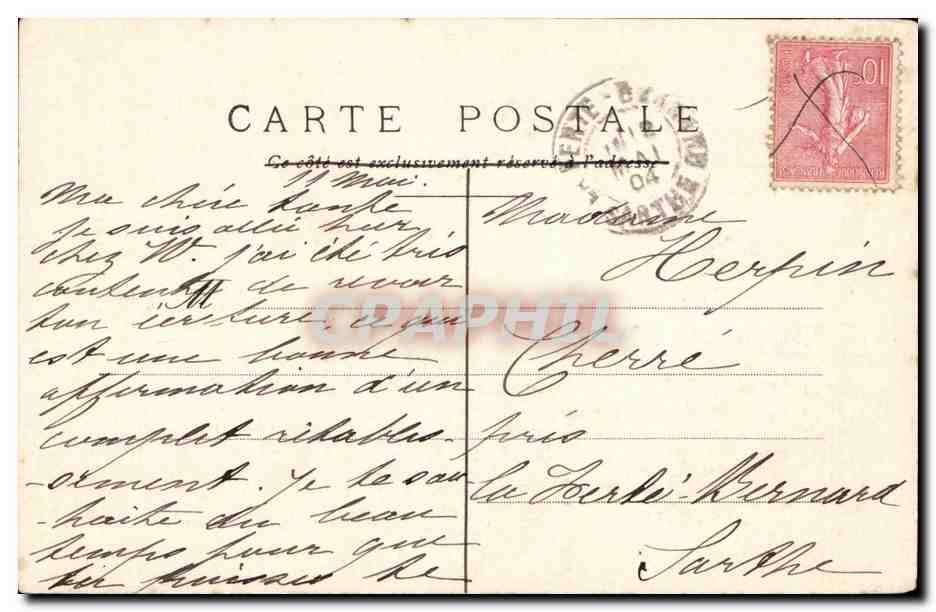 CARTE POSTALE
Ce côté est exclusivement réservé à l'adresse
11 Mai.
Ma chère tante
je suis allé hier
chez W. j'ai été très
content de revoir
ton écriture, ce qui
est une bonne
affirmation d'un
complet rétablis-
-sement. Je te sou
-haite du beau
temps pour que
tu puisses te
Madame
Herpin
Cherré
près
la Ferté-Bernard
Sarthe
LA FERTE-BERNARD
MAI
04
SARTHE
10c
CPAPHIL